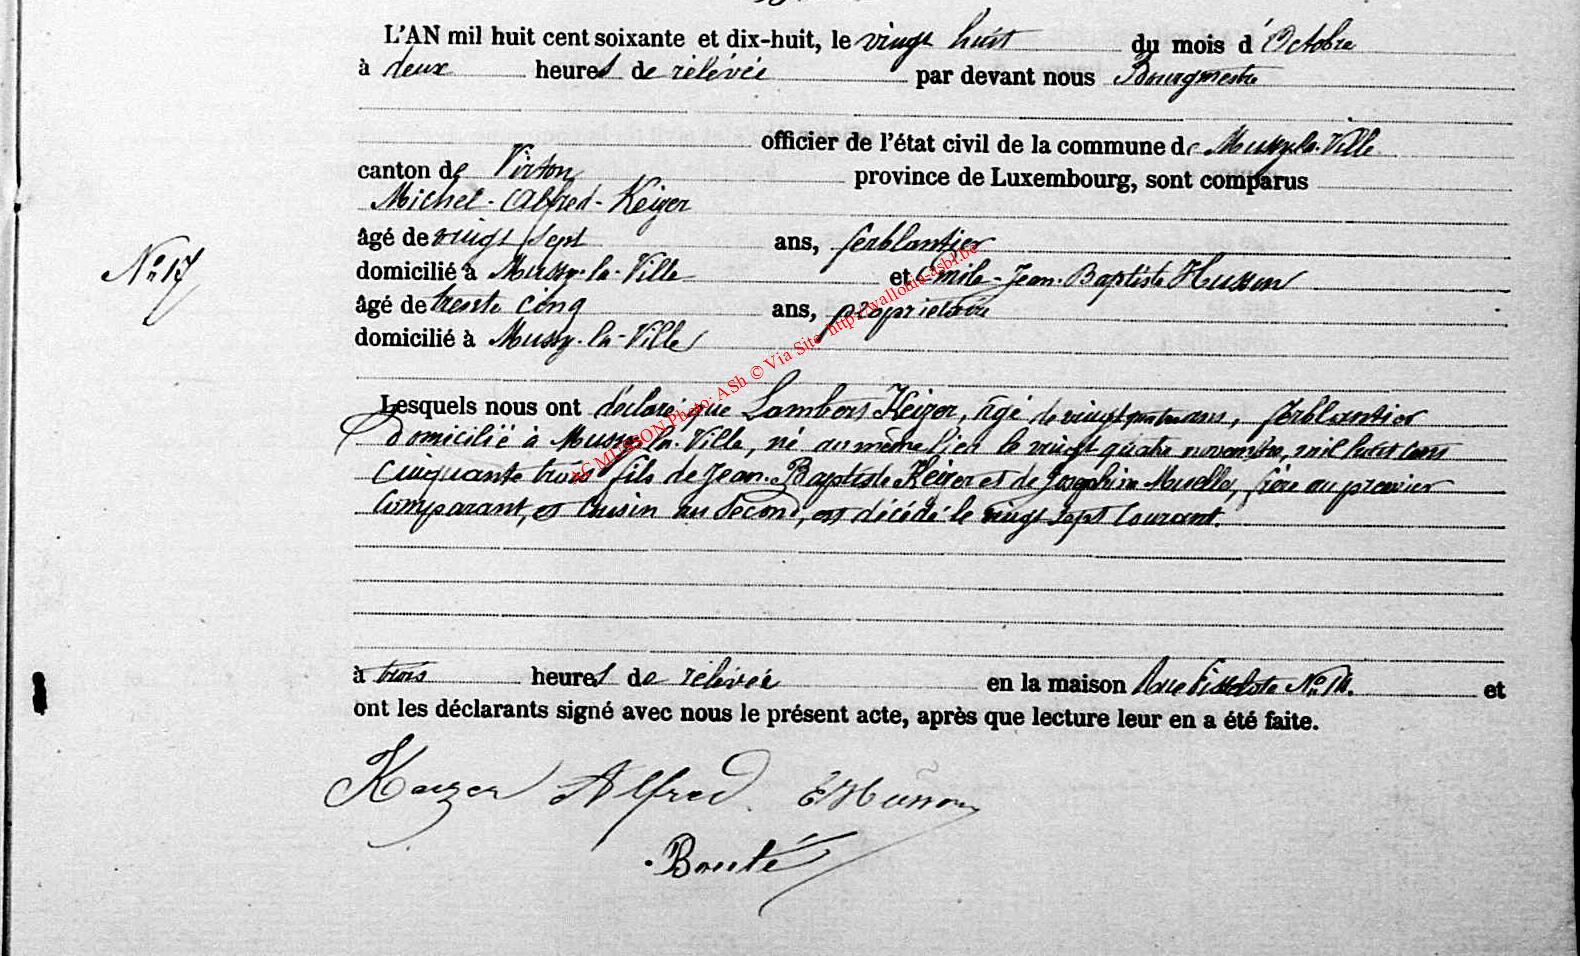 L'AN mil huit cent soixante et dix-huit, le vingt huit du mois d'Octobre
à deux heures de rélévée par devant nous Bourgmestre
officier de l'état civil de la commune de Mussy-la-Ville
canton de Virton province de Luxembourg, sont comparus
Michel-Alfred-Keizer
âgé de vingt sept ans, ferblantier
domicilié à Mussy-la-Ville et Emile-Jean-Baptiste Husson
âgé de trente cinq ans, propriétaire
domicilié à Mussy-la-Ville
N° 17
Lesquels nous ont déclaré que Lambert Keizer, âgé de vingt quatre ans, ferblantier
domicilié à Mussy-la-Ville, né au même lieu le vingt quatre novembre, mil huit cent
cinquante trois fils de Jean-Baptiste Keizer et de Josephine Muelle, frère au premier
comparant, et cousin au second, est décédé le vingt sept courant.
à trois heures de rélévée en la maison Rue N° 14. et
ont les déclarants signé avec nous le présent acte, après que lecture leur en a été faite.
Keizer Alfred E Husson
Bouté
AC MUSSON Photo: ASb © Via Site http://wallonia-asbl.be